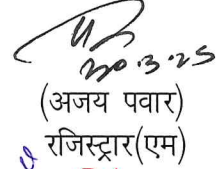 30.3.25
(अजय पवार)
रजिस्ट्रार(एम)